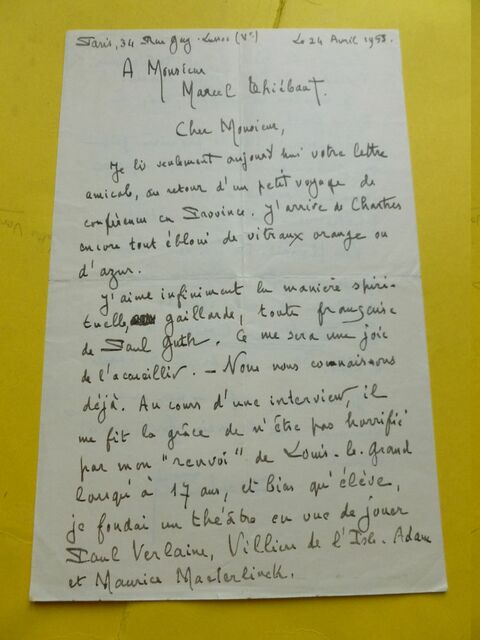 Paris, 34 Rue Gay-Lussac (Ve) Le 24 Avril 1958.
A Monsieur
Marcel Thiébaut.
Cher Monsieur,
Je lis seulement aujourd'hui votre lettre
amicale, au retour d'un petit voyage de
conférence en Province. J'arrive de Chartres
encore tout ébloui de vitraux orange ou
d'azur.
J'aime infiniment la manière spiri-
tuelle, gaillarde, toute française
de Paul Guth. Ce me sera une joie
de l'accueillir. — Nous nous connaissons
déjà. Au cours d'une interview, il
me fit la grâce de n'être pas horrifié
par mon "renvoi" de Louis-le-Grand
lorsqu'à 17 ans, et bien qu'élève,
je fondai un théâtre en vue de jouer
Paul Verlaine, Villiers de l'Isle-Adam
et Maurice Maeterlinck.